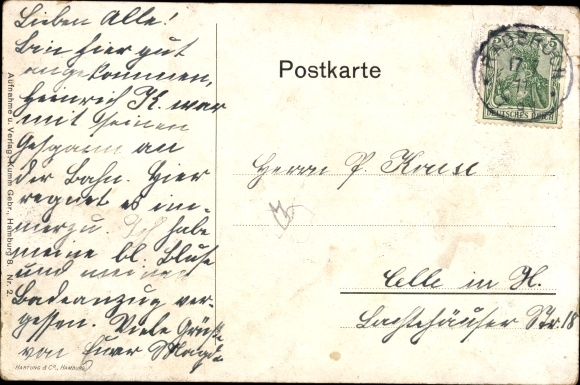 Lieben Alle!
bin hier gut
angekommen,
Heinrich K. war
mit seinen
Gespann an
der Bahn. Hier
regnet es im-
merzu. Ich habe
meine bl. Bluse
und meinen
Badeanzug ver-
gessen. Viele Grüße
von Eurer Magda
Aufnahme u. Verlag Krumm Gebr., Hamburg 8. Nr. 2.
HARTUNG & Co., HAMBURG
Postkarte
DEUTSCHES REICH
Herrn P. Krause
Celle in H.
Lachtehäuser Str. 18